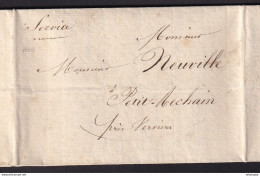 Service
Monsieur
Monsieur Neuville
à Petit-Rechain
près Verviers